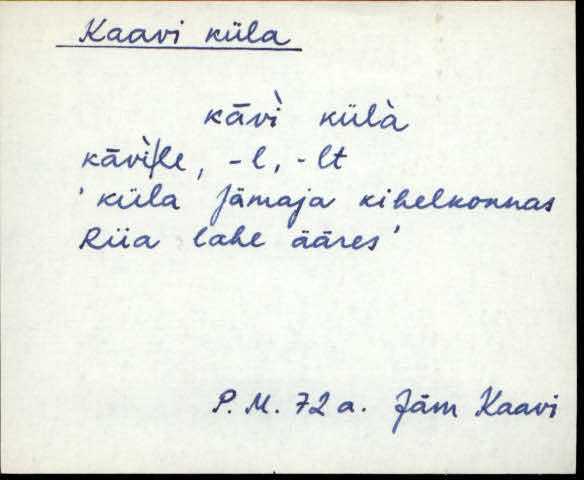 Kaavi küla
kāvì külà
kāvìlle, -l, -lt
'küla Jämaja kihelkonnas
Riia lahe ääres'
P. M. 72 a. Jäm Kaavi